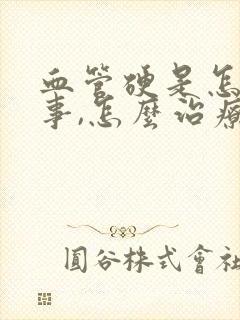 血管硬是怎
事,怎麼治療
圓谷株式會社